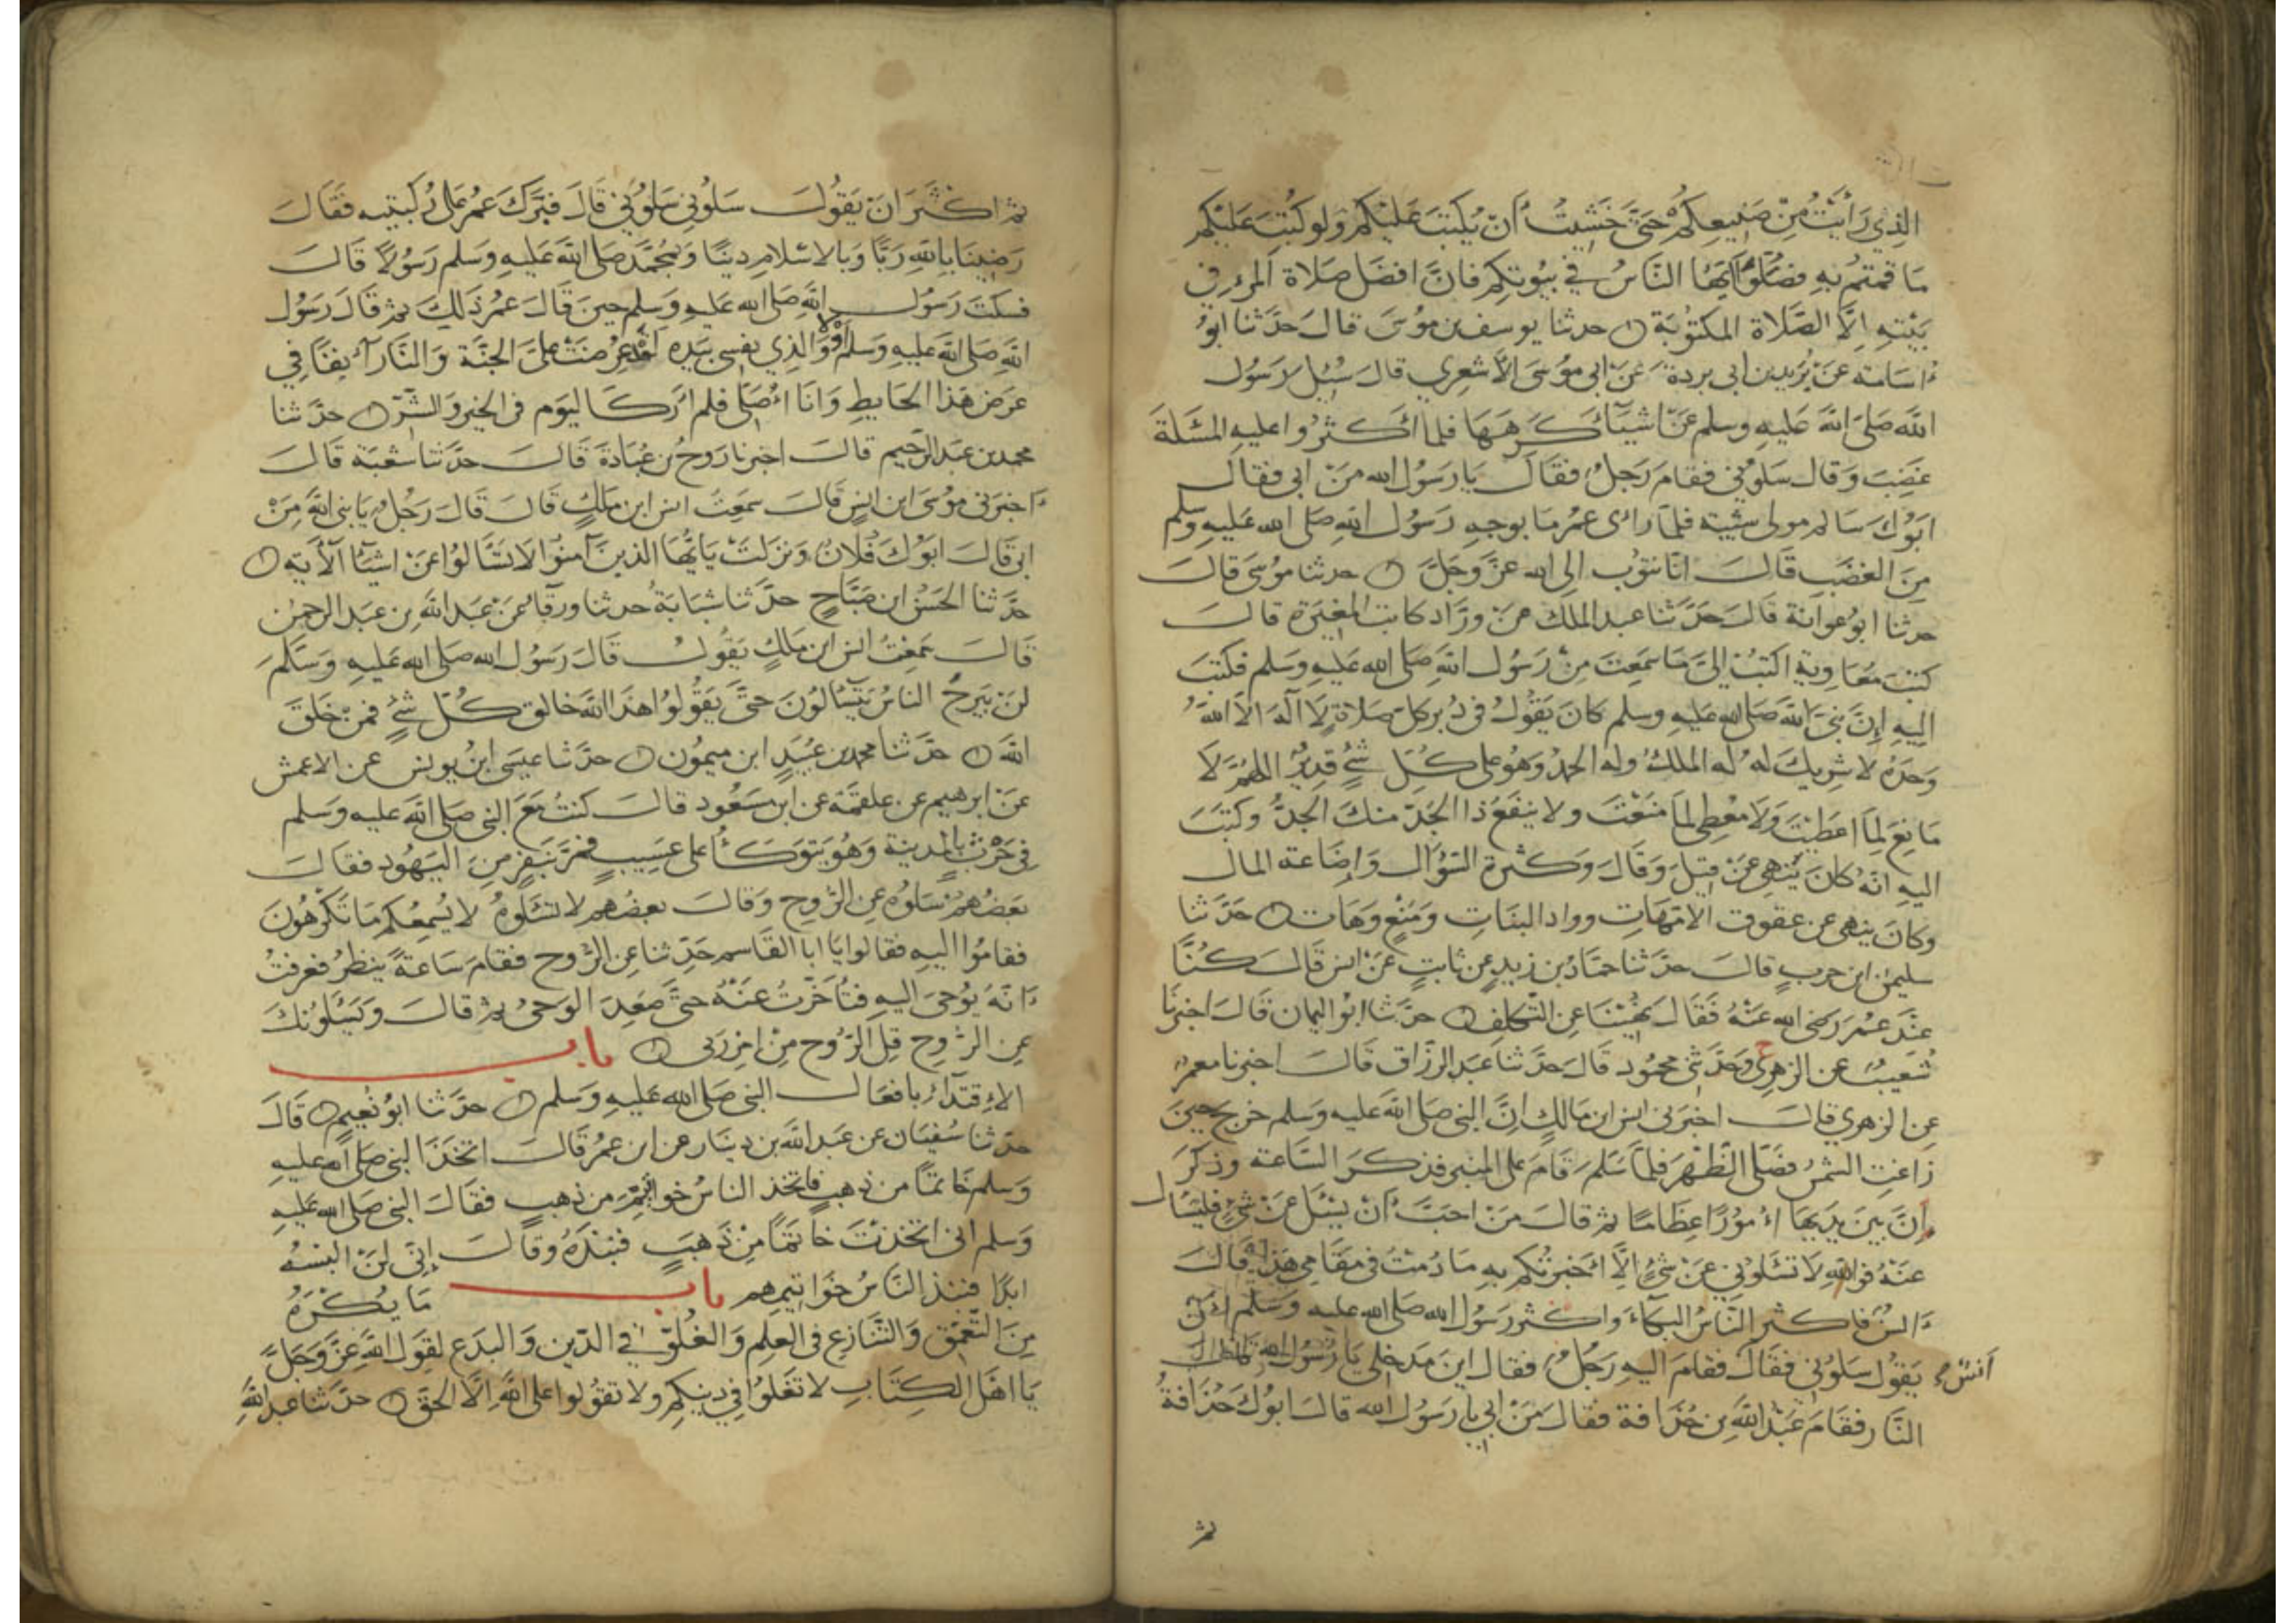 الذي رَأَيْتُ مِنْ صَنِيعِكُمْ حَتَّى خَشِيتُ أَنْ يُكْتَبَ عَلَيْكُمْ وَلَو كُتِبَ عَلَيْكُم
مَا قُمْتُمْ بِهِ فَصَلُّوا أَيُّهَا النَّاسُ فِي بُيُوتِكُم فَإِنَّ افضَل صَلاة المَرْءِ في
بَيْتِهِ إِلَّا الصَّلَاة المكتوبَة حدثنا يوسف بن موسَى قالَ حَدَّثنا ابوُ
اسَامَة عَنْ بُرَيد بن ابى بردة عَنْ ابى موُسَى الأشعري قال سُئِل رَسُول
الله صَلى الله عَليهِ وسلم عَنْ اشيَآ كَرِهَهَا فلما اكثرُوا عليهِ المسْئلَة
غَضِبَ وَقال سَلوُنى فقامَ رَجلٌ فقَالَ يَا رَسُول الله مَنْ ابى فقال
ابُوك سَالم مولى شيبة فلمَّا رائ عمرُ مَا بوجهِ رَسُول الله صَلى الله عَليهِ وسَلم
مِنَ الغضَب قَالَ انَّا نتوُب الى الله عَزَّ وَجَلَّ حدثنا موسَى قالَ
حدثنا ابوُ عوانة قَالَ حَدَّثنا عبد الملك عن ورَّاد كاتب المغيَرة قالَ
كتبَ مُعَاوية اكتبُ الىَّ مَا سمعتَ مِنْ رَسُول الله صَلى الله عَليهِ وسلم فكتبَ
اليهِ إنَّ نبىَّ الله صَلى الله عَليهِ وسلم كانَ يَقُولُ فى دُبر كل صَلاةٍ لَا الَه الَّا اللهُ
وَحدَهُ لا شريكَ لهُ لَه الملكُ وله الحمدُ وَهُوَ على كُلِّ شئٍ قديرٌ اللهُمَّ لَا
مَانعَ لِمَا اعطيْتَ وَلَا مُعْطِى لمَا منعْتَ ولا ينفَعُ ذا الجَدّ منكَ الجدُّ وكتبَ
اليهِ انهُ كانَ يَنْهى عَنْ قيلَ وَقَالَ وكثرة السّؤَال وَإضَاعة المال
وكانَ ينهى عن عقوق الامّهَاتِ وواد البنَاتِ وَمَنْعٍ وَهَات حَدَّثنا
سليمٰن ابن حربٍ قالَ حدَّثنا حمّادُ بن زيدٍ عن ثابتٍ عَنْ انس قَالَ كُنَّا
عنْد عمرَ رَضى الله عَنْهُ فَقَالَ نُهِيْنَا عَنِ التّكلف حدَّثنا ابوُ اليمان قَالَ اخبرنَا
شُعَيبٌ عن الزهرى ح وحَدَّثنى محمُود قَالَ حدَّثنا عَبد الرزَّاق قَالَ اخبرنا معمرٌ
عن الزهرى قالَ اخبَرنى انس ابن مَالكٍ انَّ النبى صَلى الله عليه وسلم خرج حينَ
زاغتِ الشمْسُ فصَلّى الظُّهْرَ فلمَّا سَلّمَ قَامَ على المنبر فذكرَ السَّاعة وذكرَ
انَّ بينَ يَدَيهَا امُورًا عِظَامًا ثم قالَ مَنْ احبَّ انْ يَسْئَل عَنْ شئٍ فليَسْال
عَنْهُ فوالله لَا تَسْئَلوُنى عَنْ شئٍ إلَّا اخبرْتُكم بهِ مَا دُمْتُ فى مَقَامى هَذا قَالَ
انسٌ فاكثرَ النّاسُ البكآءَ واكثر رَسُول الله صَلى الله عليه وَسَلم انْ
انسٌ يَقوُل سَلوُنى فقالَ فقامَ اليهِ رَجلٌ فقال اين مَدخلى يَا رَسُولَ الله قال
النَّار فقَامَ عَبْدُ اللهِ بن حُذَافة فقالَ مَنْ ابي يا رَسُول الله قالَ ابوُكَ حُذَافةُ
ثم
ثم اكثَرَ انْ يَقوُلَ سَلوُنى سَلوُنى قَالَ فبَرَكَ عمرُ عَلى رُكبَتيه فقَالَ
رَضينَا باللهِ رَبًّا وَبالاسْلام دينًا وَبمُحمَّدٍ صَلى الله عَليهِ وَسَلم رَسُولًا قَالَ
فسكتَ رَسُول الله صَلى الله عَليهِ وسَلم حينَ قَالَ عمرُ ذَلكَ ثم قَالَ رَسُول
الله صَلى الله عليهِ وَسَلم وَالذِي نفسى بيَده لقد عُرضَتْ عَلىَّ الجنَّة وَالنَّار آنفًا في
عرَض هَذا الحَايطِ وَانَا اصَلّى فلم ارَ كَاليوَم فى الخير وَالشّرّ حدَّثنا
محمد بن عَبد الرَّحيم قالَ اخبرنا رَوحُ بن عُبَادَة قَالَ حدَّثنا شعْبَة قَالَ
اخبرَنى موُسَى ابن انسٍ قَالَ سمعتُ انس ابن مٰلكٍ قَالَ قَالَ رَجُلٌ يَا نبى اللهِ مَنْ
ابى قَالَ ابوُكَ فُلَانٌ وَنزلتْ يَا يُّهَا الذينَ آمنُوا لَا تسْئَالوُا عَنْ اشيَآ الآية
حدَّثنا الحَسَنُ ابن صَبَّاحٍ حدَّثنا شبَابَةُ حدثنا ورقَآ عَنْ عَبد الله بن عَبد الرحمٰن
قَالَ سَمعْتُ انس ابن مٰلكٍ يَقُولُ قَالَ رَسُول الله صَلى الله عَليهِ وَسَلّمَ
لَنْ يَبرحَ الناسُ يَتَسَآلوُنَ حتَّى يَقوُلوُا هذَا الله خالق كُلّ شئٍ فمنْ خَلَقَ
الله حدَّثنا محمد بن عُبَيدٍ ابن ميموُن حدَّثنا عيسَى ابنُ يونس عن الاعمش
عَنْ ابرهيم عن علقمَة عن ابن مسْعُود قالَ كنتُ مَعَ النبى صَلى الله عليه وسلم
فى حَرْثٍ بالمدينة وَهُوَ يَتوَكَّأُ على عَسِيبٍ فمرَّ بنَفرٍ مِنَ اليَهُود فقالَ
بَعضُهُمْ سَلوُه عن الرُّوح وَقَالَ بعضُهم لا تسْئَلوُهُ لا يُسْمِعُكم مَا تكرَهُونَ
فقامُوا اليهِ فقالوا يَا ابا القَاسم حَدِّثنا عَن الرُّوح فقَامَ سَاعةً ينظرُ فعرفتُ
انّهُ يُوحَى اليهِ فتأخّرتُ عَنْهُ حتَّى صَعِدَ الوَحىُ ثم قالَ وَيَسْئَلوُنكَ
عنِ الرّوح قلِ الرّوُح مِنْ امْرِ رَبى باب
الاقتدآء بافعَال النبى صَلى الله عَليهِ وَسَلم حدَّثنا ابوُ نُعيم قَالَ
حدَّثنا سُفيَان عن عَبد الله بن دينَار عن ابن عمرُ قَالَ اتخذَ النبى صَلى الله عليهِ
وَسَلم خَاتمًا من ذهبٍ فاتخذ الناسُ خواتيمَ من ذهبٍ فقَالَ النبى صَلى الله عليهِ
وَسَلم انى اتخذتُ خاتمًا مِنْ ذَهبٍ فنبذَهُ وقالَ إنى لنْ البسهُ
ابدًا فنبذ النَّاسُ خَوَاتيمهم باب مَا يُكْرَهُ
مِنَ التّعَمّق وَالتّنَازع فى العِلم وَالغُلوّ فى الدّين وَالبدَع لقوَل الله عَزَّ وَجَلَّ
يَا اهَل الكِتَابِ لا تَغلوُا فِي دينكم ولا تقوُلوا على اللهِ الَّا الحَقَّ حدَّثنا عبد اللهِ